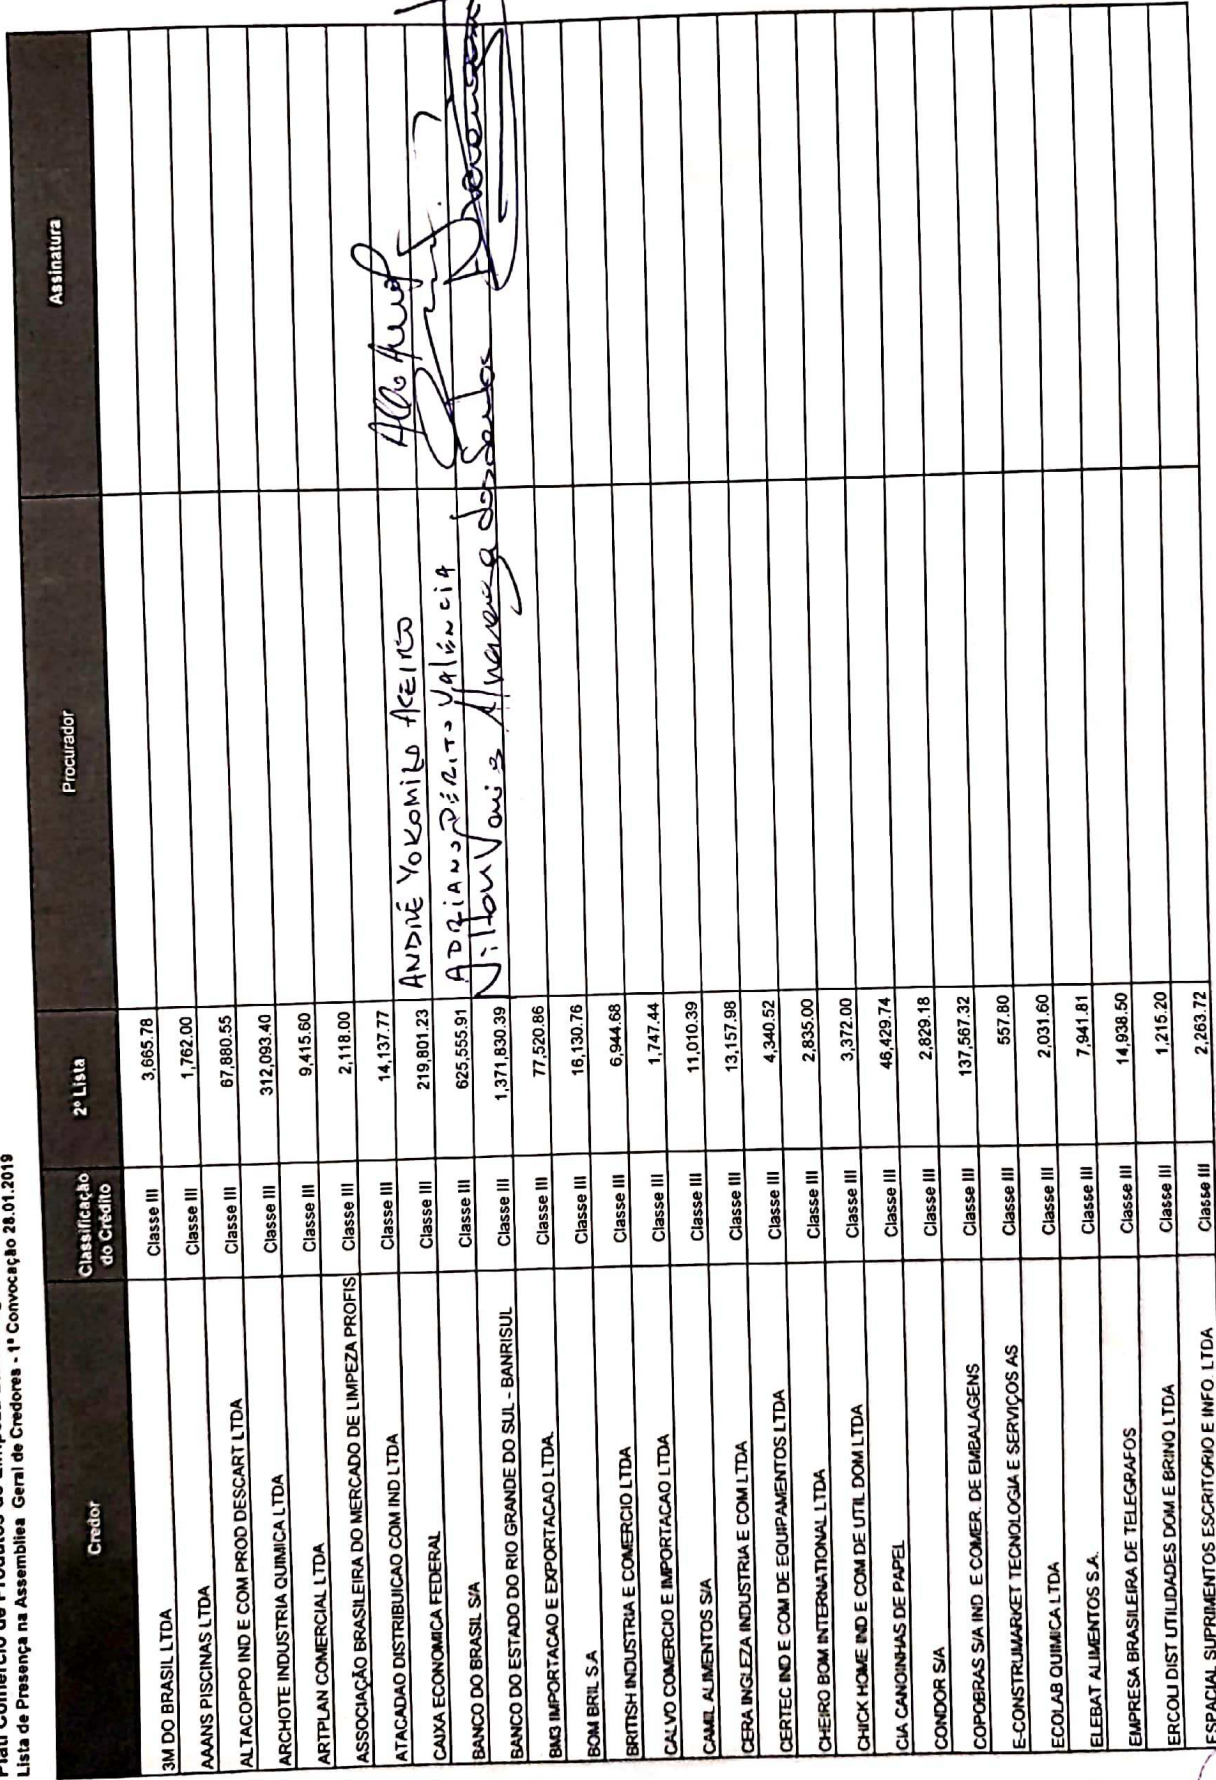 Comércio de Produtos de Limpeza
Lista de Presença na Assembliea Geral de Credores - 1ª Convocação 28.01.2019
Credor Classificação do Crédito 2ª Lista Procurador Assinatura
3M DO BRASIL LTDA Classe III 3,665.78
AAANS PISCINAS LTDA Classe III 1,762.00
ALTACOPPO IND E COM PROD DESCART LTDA Classe III 67,880.55
ARCHOTE INDUSTRIA QUIMICA LTDA Classe III 312,093.40
ARTPLAN COMERCIAL LTDA Classe III 9,415.60
ASSOCIAÇÃO BRASILEIRA DO MERCADO DE LIMPEZA PROFIS Classe III 2,118.00
ATACADAO DISTRIBUICAO COM IND LTDA Classe III 14,137.77
CAIXA ECONOMICA FEDERAL Classe III 219,801.23 ANDRÉ YOKOMIZO ACEIRO
BANCO DO BRASIL S/A Classe III 625,555.91 ADRIANO PÉRITO VALÊNCIA
BANCO DO ESTADO DO RIO GRANDE DO SUL - BANRISUL Classe III 1,371,830.39 dos Santos
BM3 IMPORTACAO E EXPORTACAO LTDA. Classe III 77,520.86
BOM BRIL S.A Classe III 16,130.76
BRITISH INDUSTRIA E COMERCIO LTDA Classe III 6,944.68
CALVO COMERCIO E IMPORTACAO LTDA Classe III 1,747.44
CAMIL ALIMENTOS S/A Classe III 11,010.39
CERA INGLEZA INDUSTRIA E COM LTDA Classe III 13,157.98
CERTEC IND E COM DE EQUIPAMENTOS LTDA Classe III 4,340.52
CHEIRO BOM INTERNATIONAL LTDA Classe III 2,835.00
CHICK HOME IND E COM DE UTIL DOM LTDA Classe III 3,372.00
CIA CANOINHAS DE PAPEL Classe III 46,429.74
CONDOR S/A Classe III 2,829.18
COPOBRAS S/A IND. E COMER. DE EMBALAGENS Classe III 137,567.32
E-CONSTRUMARKET TECNOLOGIA E SERVIÇOS AS Classe III 557.80
ECOLAB QUIMICA LTDA Classe III 2,031.60
ELEBAT ALIMENTOS S.A. Classe III 7,941.81
EMPRESA BRASILEIRA DE TELEGRAFOS Classe III 14,938.50
ERCOLI DIST UTILIDADES DOM E BRINQ LTDA Classe III 1,215.20
ESPACIAL SUPRIMENTOS ESCRITORIO E INFO. LTDA Classe III 2,263.72